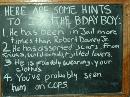 HERE ARE SOME HINTS
TO THE BDAY BOY:
1. He has been in Jail more
times than Robert Downey Jr.
2. He has assorted scars from
jilted lovers.
3. He is probably wearing your
clothes.
4. You've probably seen
him on COPS.